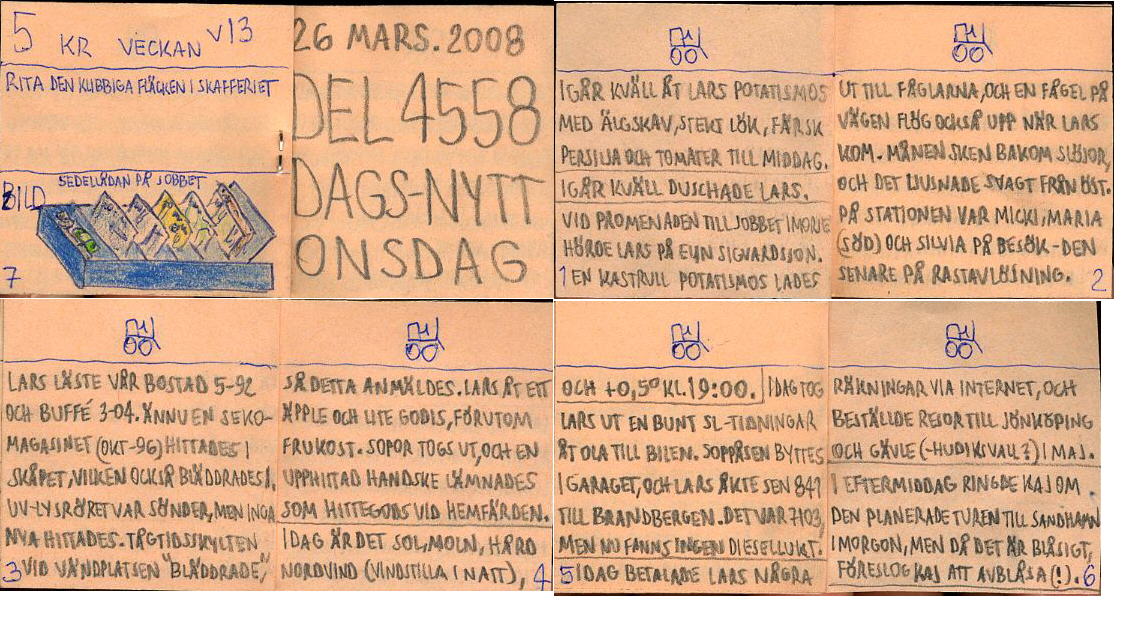 5 KR VECKAN V13
RITA DEN KLIBBIGA FLÄCKEN I SKAFFERIET
BILD
SEDELLÅDAN PÅ JOBBET
7
26 MARS. 2008
DEL 4558
DAGS-NYTT
ONSDAG
IGÅR KVÄLL ÅT LARS POTATISMOS
MED ÄLGSKAV, STEKT LÖK, FÄRSK
PERSILJA OCH TOMATER TILL MIDDAG.
IGÅR KVÄLL DUSCHADE LARS.
VID PROMENADEN TILL JOBBET IMORSE
HÖRDE LARS PÅ ELIN SIGVARDSSON.
1 EN KASTRULL POTATISMOS LADES
UT TILL FÅGLARNA, OCH EN FÅGEL PÅ
VÄGEN FLÖG OCKSÅ UPP NÄR LARS
KOM. MÅNEN SKEN BAKOM SLÖJOR,
OCH DET LJUSNADE SVAGT FRÅN ÖST.
PÅ STATIONEN VAR MICKI, MARIA
(SÖD) OCH SILVIA PÅ BESÖK - DEN
SENARE PÅ RASTAVLÖSNING. 2
LARS LÄSTE VÅR BOSTAD 5-92
OCH BUFFÉ 3-04. ÄNNU EN SEKO-
MAGASINET (OKT-96) HITTADES I
SKÅPET, VILKEN OCKSÅ BLÄDDRADES I.
UV-LYSRÖRET VAR SÖNDER, MEN INGA
NYA HITTADES. TÅGTIDSSKYLTEN
3 VID VÄNDPLATSEN "BLÄDDRADE",
SÅ DETTA ANMÄLDES. LARS ÅT ETT
ÄPPLE OCH LITE GODIS, FÖRUTOM
FRUKOST. SOPOR TOGS UT, OCH EN
UPPHITTAD HANDSKE LÄMNADES
SOM HITTEGODS VID HEMFÄRDEN.
IDAG ÄR DET SOL, MOLN, HÅRD
NORDVIND (VINDSTILLA I NATT), 4
OCH +0,5° KL.19:00. IDAG TOG
LARS UT EN BUNT SL-TIDNINGAR
ÅT OLA TILL BILEN. SOPPÅSEN BYTTES
I GARAGET, OCH LARS ÅKTE SEN 841
TILL BRANDBERGEN. DET VAR 7103,
MEN NU FANNS INGEN DIESELLUKT.
5 IDAG BETALADE LARS NÅGRA
RÄKNINGAR VIA INTERNET, OCH
BESTÄLLDE RESOR TILL JÖNKÖPING
OCH GÄVLE (-HUDIKSVALL?) I MAJ.
I EFTERMIDDAG RINGDE KAJ OM
DEN PLANERADE TUREN TILL SANDHAMN
IMORGON, MEN DÅ DET ÄR BLÅSIGT,
FÖRESLOG KAJ ATT AVBLÅSA (!). 6